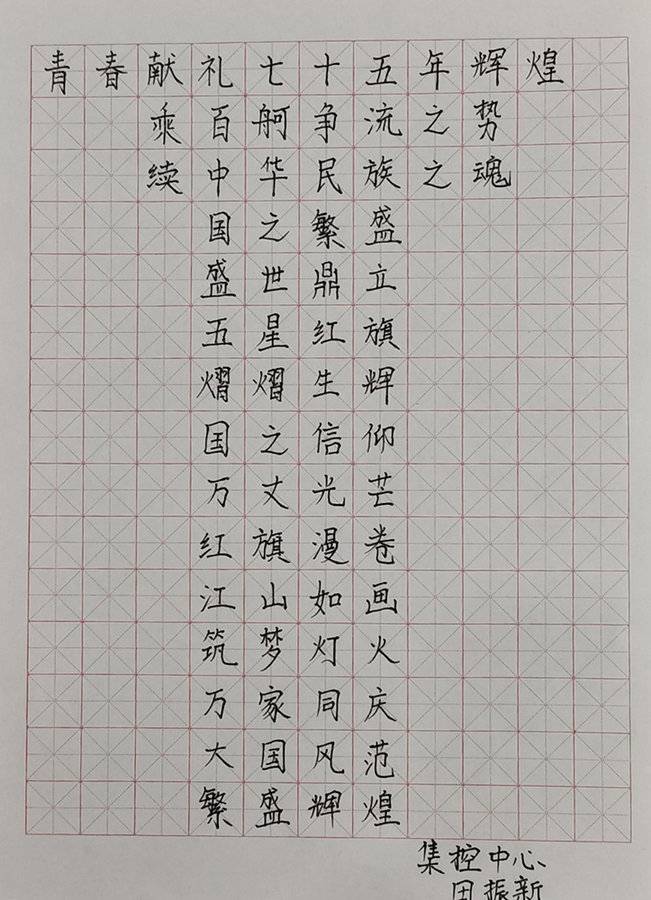 青春献礼七十五年辉煌
乘百舸争流之势
续中华民族之魂
国之繁盛
盛世鼎立
五星红旗
熠熠生辉
国之信仰
万丈光芒
红旗漫卷
江山如画
筑梦灯火
万家同庆
大国风范
繁盛辉煌
集控中心
田振新